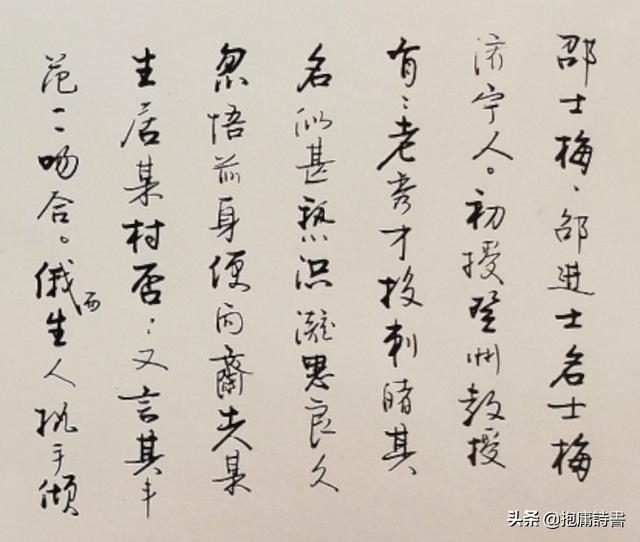 邵士梅、邵進士名士梅
济宁人。初授登州教授
有二老秀才投刺睹其
名似甚熟识凝思良久
忽悟前身便问齋夫某
生居某村否：又言其丰
范一一吻合。俄两生入执手倾
头条 @抱庸詩書